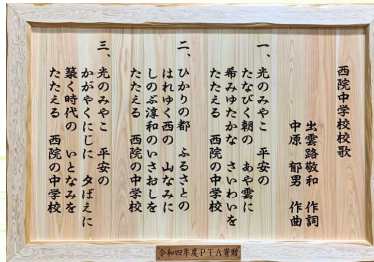 西院中学校校歌
出雲路敬和 作詞
中原 郁男 作曲
一、光のみやこ 平安の
たなびく朝の あや雲に
希みゆたかな さいわいを
たたえる 西院の中学校
二、ひかりの都 ふるさとの
はれゆく西の 山なみに
しのぶ淳和の いさおしを
たたえる 西院の中学校
三、光のみやこ 平安の
かがやくにじに 夕ばえに
築く時代の いとなみを
たたえる 西院の中学校
令和四年度PTA寄贈